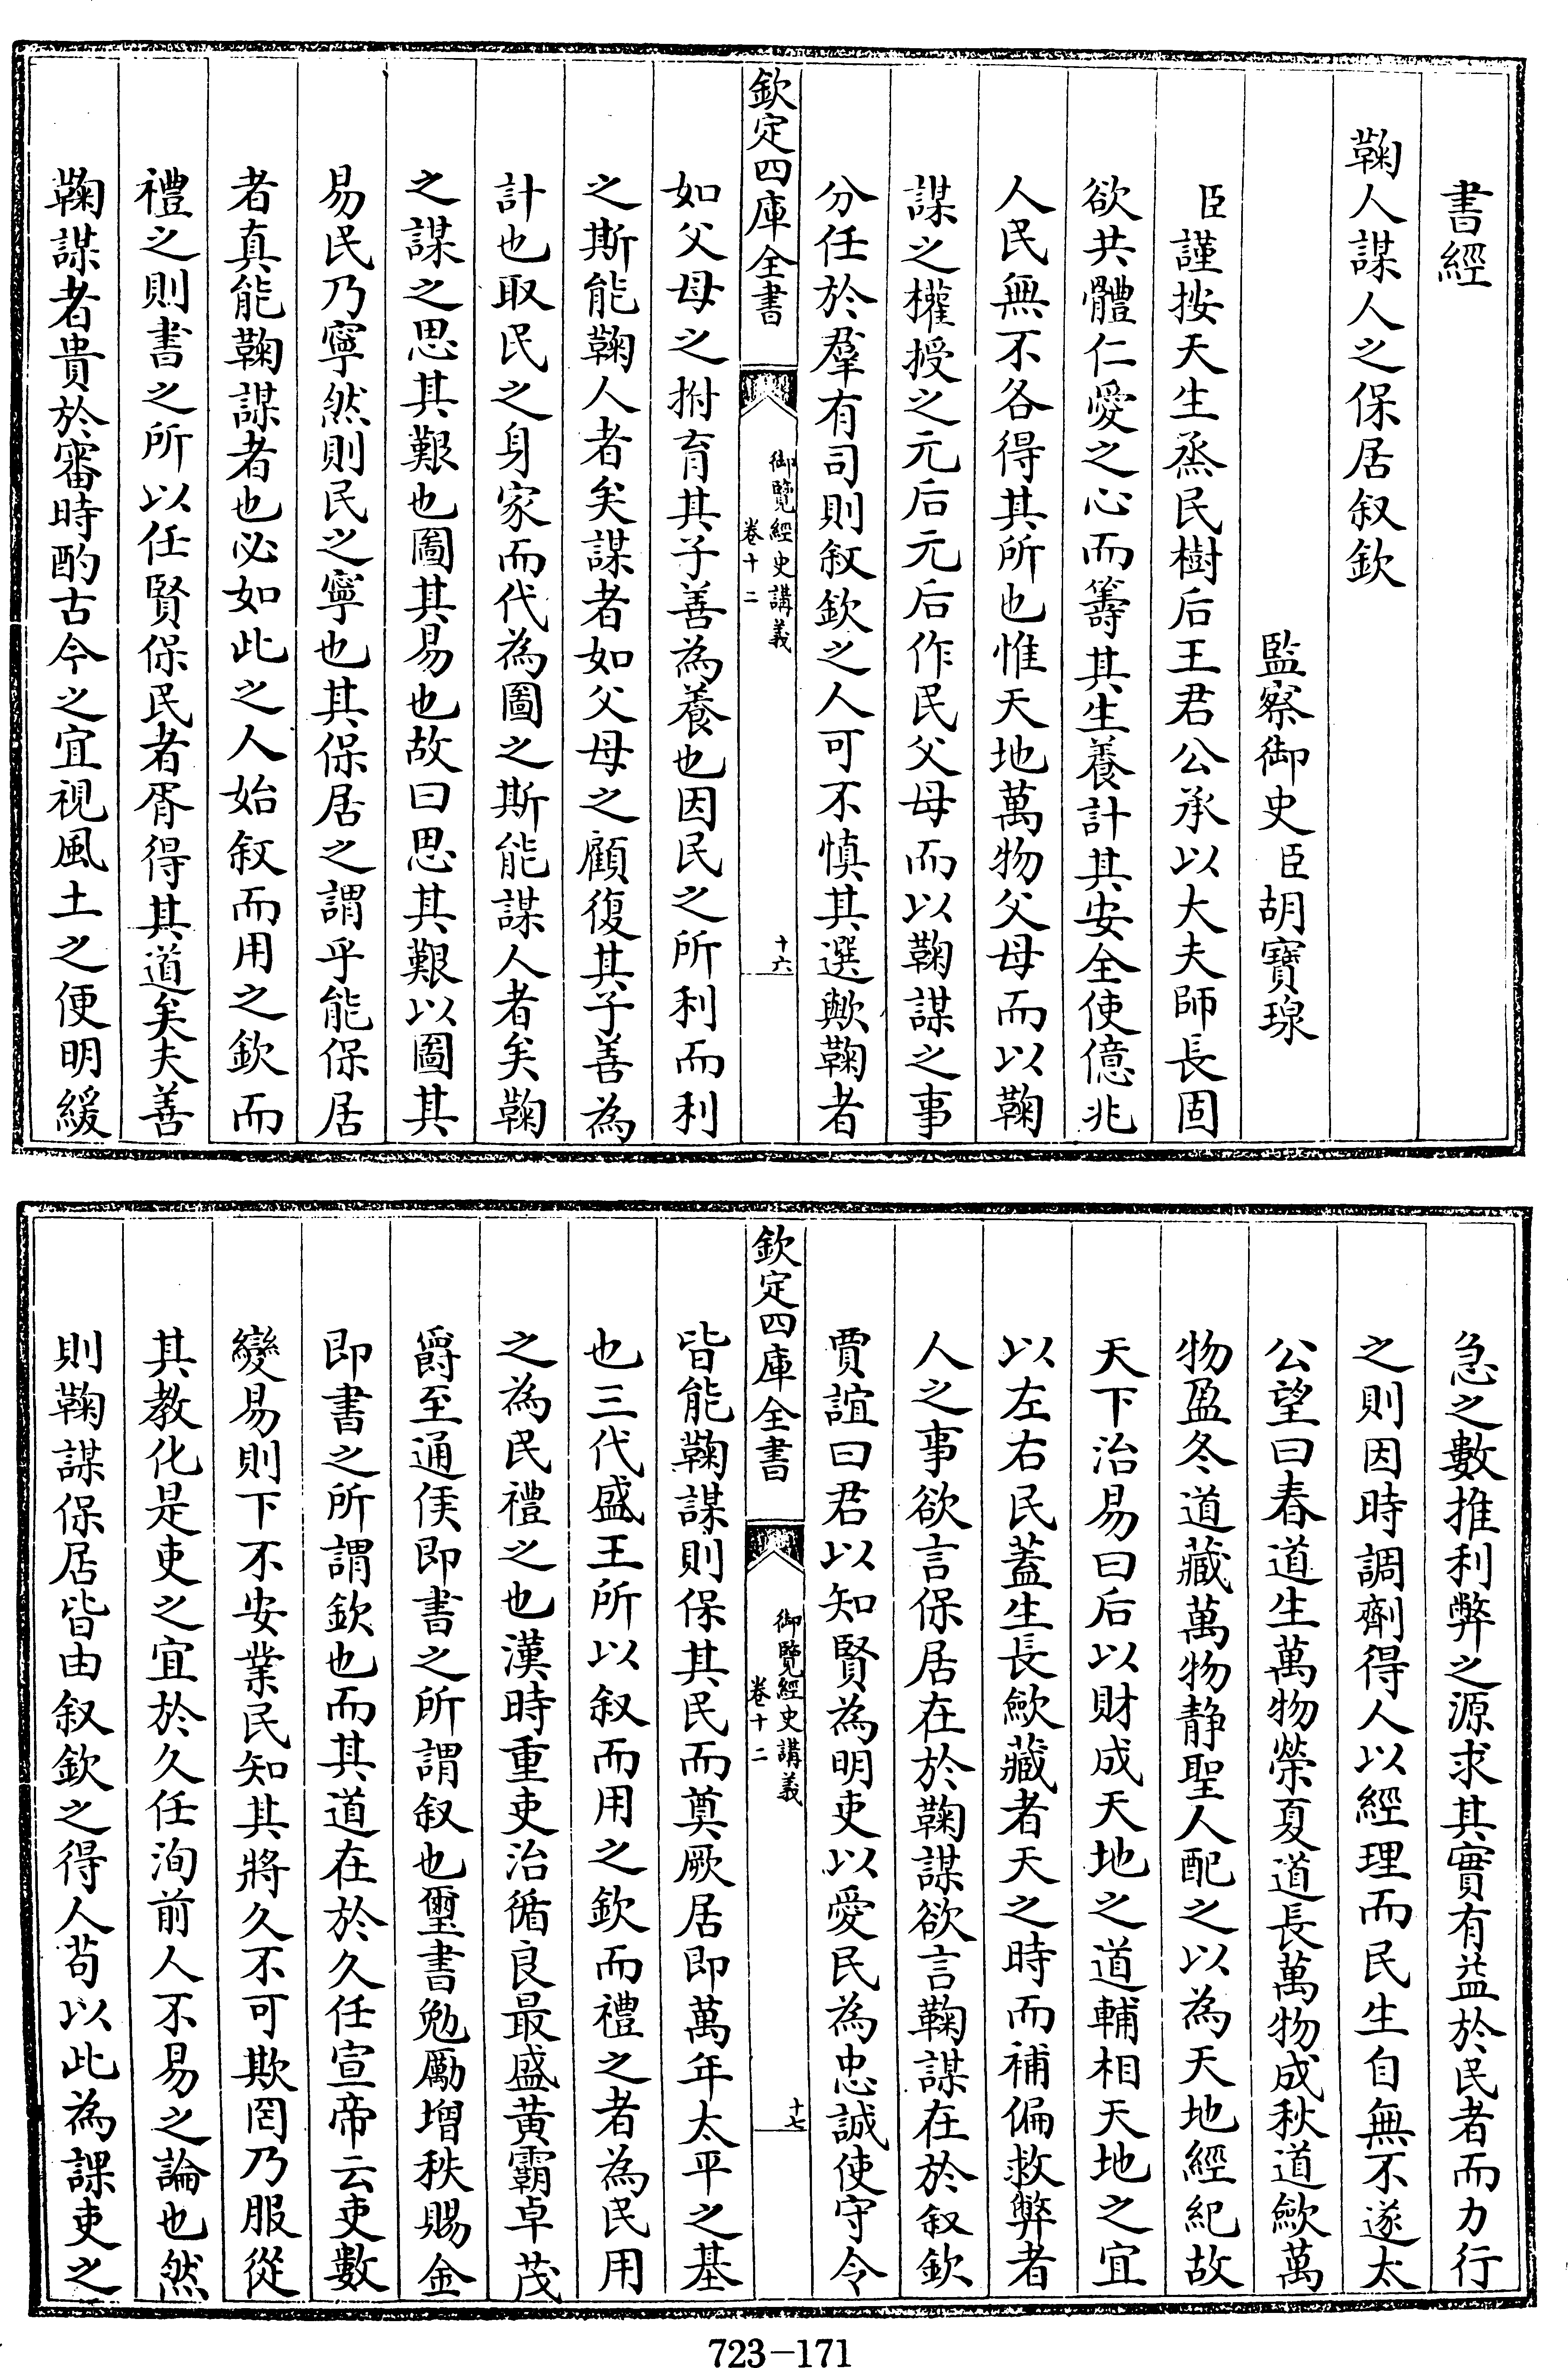 書經
鞠人謀人之保居叙欽
監察御史臣胡寶瑔
臣謹按天生烝民樹后王君公承以大夫師長固
欲共體仁愛之心而籌其生養計其安全使億兆
人民無不各得其所也惟天地萬物父母而以鞠
謀之權授之元后元后作民父母而以鞠謀之事
分任於羣有司則叙欽之人可不慎其選歟鞠者
欽定四庫全書
御覽經史講義
卷十二
十六
如父母之拊育其子善為養也因民之所利而利
之斯能鞠人者矣謀者如父母之顧復其子善為
計也取民之身家而代為圖之斯能謀人者矣鞠
之謀之思其艱也圖其易也故曰思其艱以圖其
易民乃寧然則民之寧也其保居之謂乎能保居
者真能鞠謀者也必如此之人始叙而用之欽而
禮之則書之所以任賢保民者胥得其道矣夫善
鞠謀者貴於審時酌古今之宜視風土之便明緩
急之數推利弊之源求其實有益於民者而力行
之則因時調劑得人以經理而民生自無不遂太
公望曰春道生萬物榮夏道長萬物成秋道歛萬
物盈冬道藏萬物静聖人配之以為天地經紀故
天下治易曰后以財成天地之道輔相天地之宜
以左右民蓋生長歛藏者天之時而補偏救弊者
人之事欲言保居在於鞠謀欲言鞠謀在於叙欽
賈誼曰君以知賢為明吏以愛民為忠誠使守令
欽定四庫全書
御覽經史講義
卷十二
十七
皆能鞠謀則保其民而奠厥居即萬年太平之基
也三代盛王所以叙而用之欽而禮之者為民用
之為民禮之也漢時重吏治循良最盛黄霸卓茂
爵至通侯即書之所謂叙也璽書勉勵增秩賜金
即書之所謂欽也而其道在於久任宣帝云吏數
變易則下不安業民知其將久不可欺罔乃服從
其教化是吏之宜於久任洵前人不易之論也然
則鞠謀保居皆由叙欽之得人苟以此為課吏之
723-171